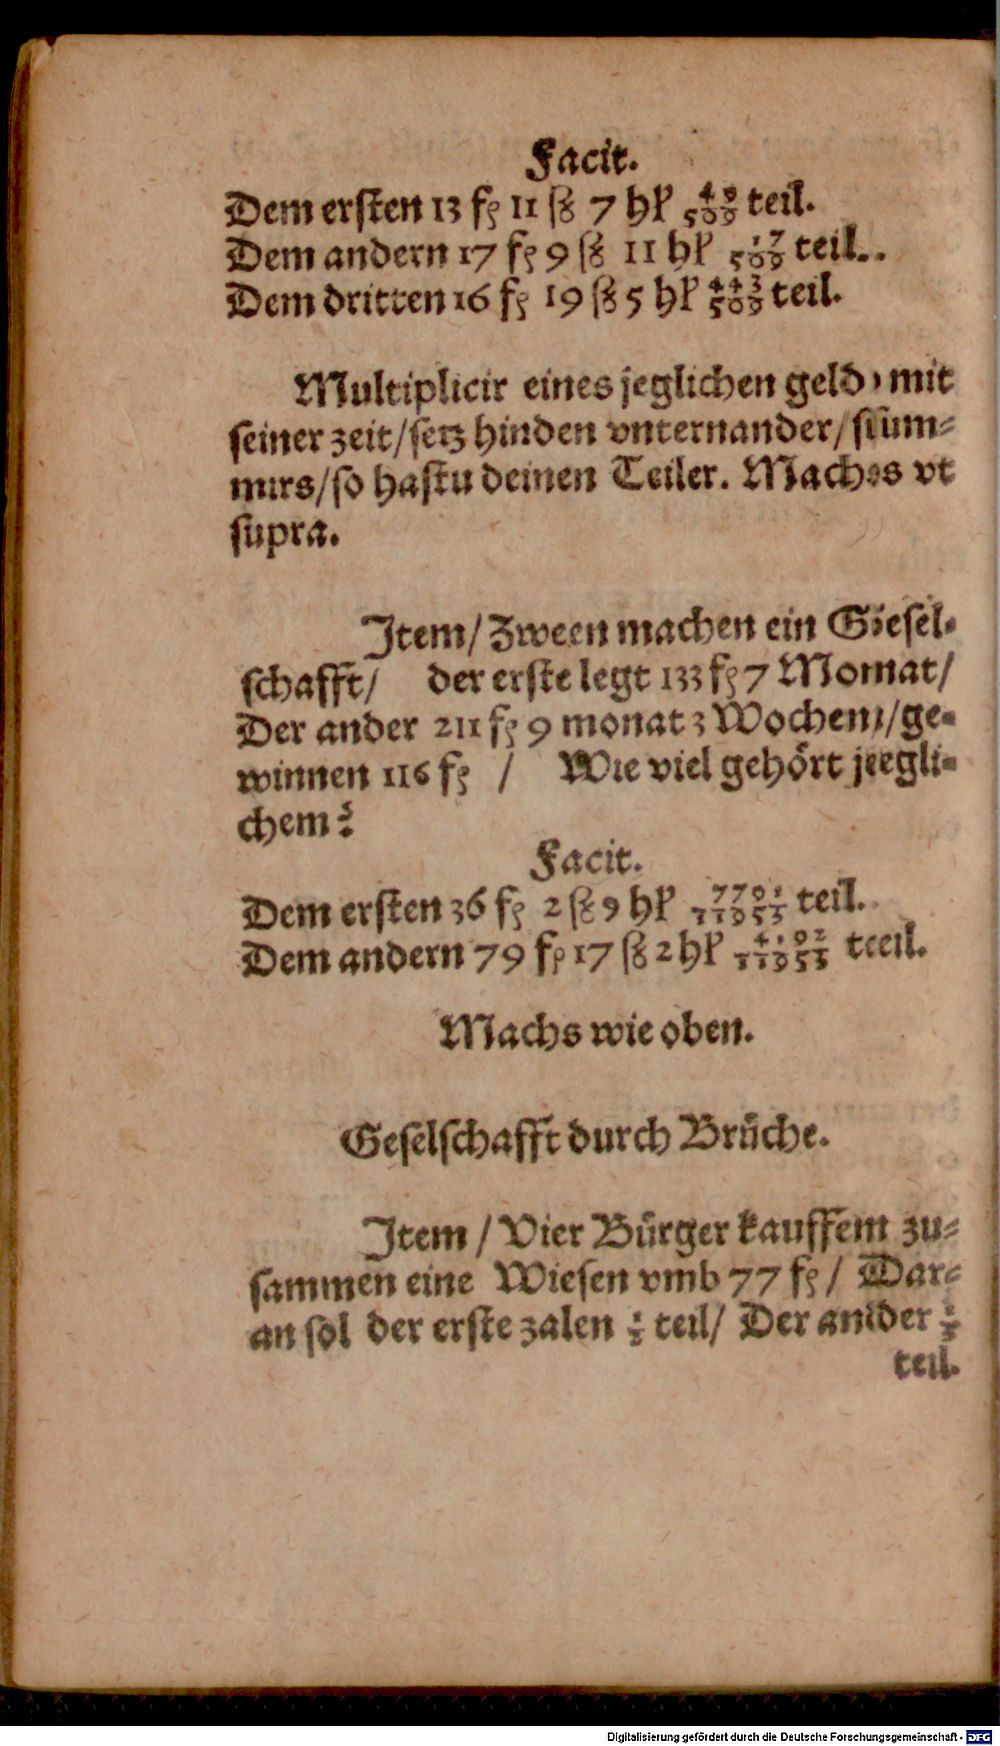 Facit.
Dem ersten 13 fl 11 ß 7 hl 49/509 teil.
Dem andern 17 fl 9 ß 11 hl 17/509 teil..
Dem dritten 16 fl 19 ß 5 hl 443/509 teil.
Multiplicir eines jeglichen geld / mit
seiner zeit/setz hinden vnternander/sum-
mirs/so hastu deinen Teiler. Machs vt
supra.
Item/Zween machen ein Gesel-
schafft/ der erste legt 133 fl 7 Monat/
Der ander 211 fl 9 monat 3 Wochen/ge-
winnen 116 fl / Wie viel gehört jegli-
chem?
Facit.
Dem ersten 36 fl 2 ß 9 hl 7791/11953 teil.
Dem andern 79 fl 17 ß 2 hl 4162/11953 teil.
Machs wie oben.
Geselschafft durch Brüche.
Item / Vier Bürger kauffen zu-
sammen eine Wiesen vmb 77 fl / Dar-
an sol der erste zalen ½ teil/ Der ander ⅓
teil.
Digitalisierung gefördert durch die Deutsche Forschungsgemeinschaft - DFG